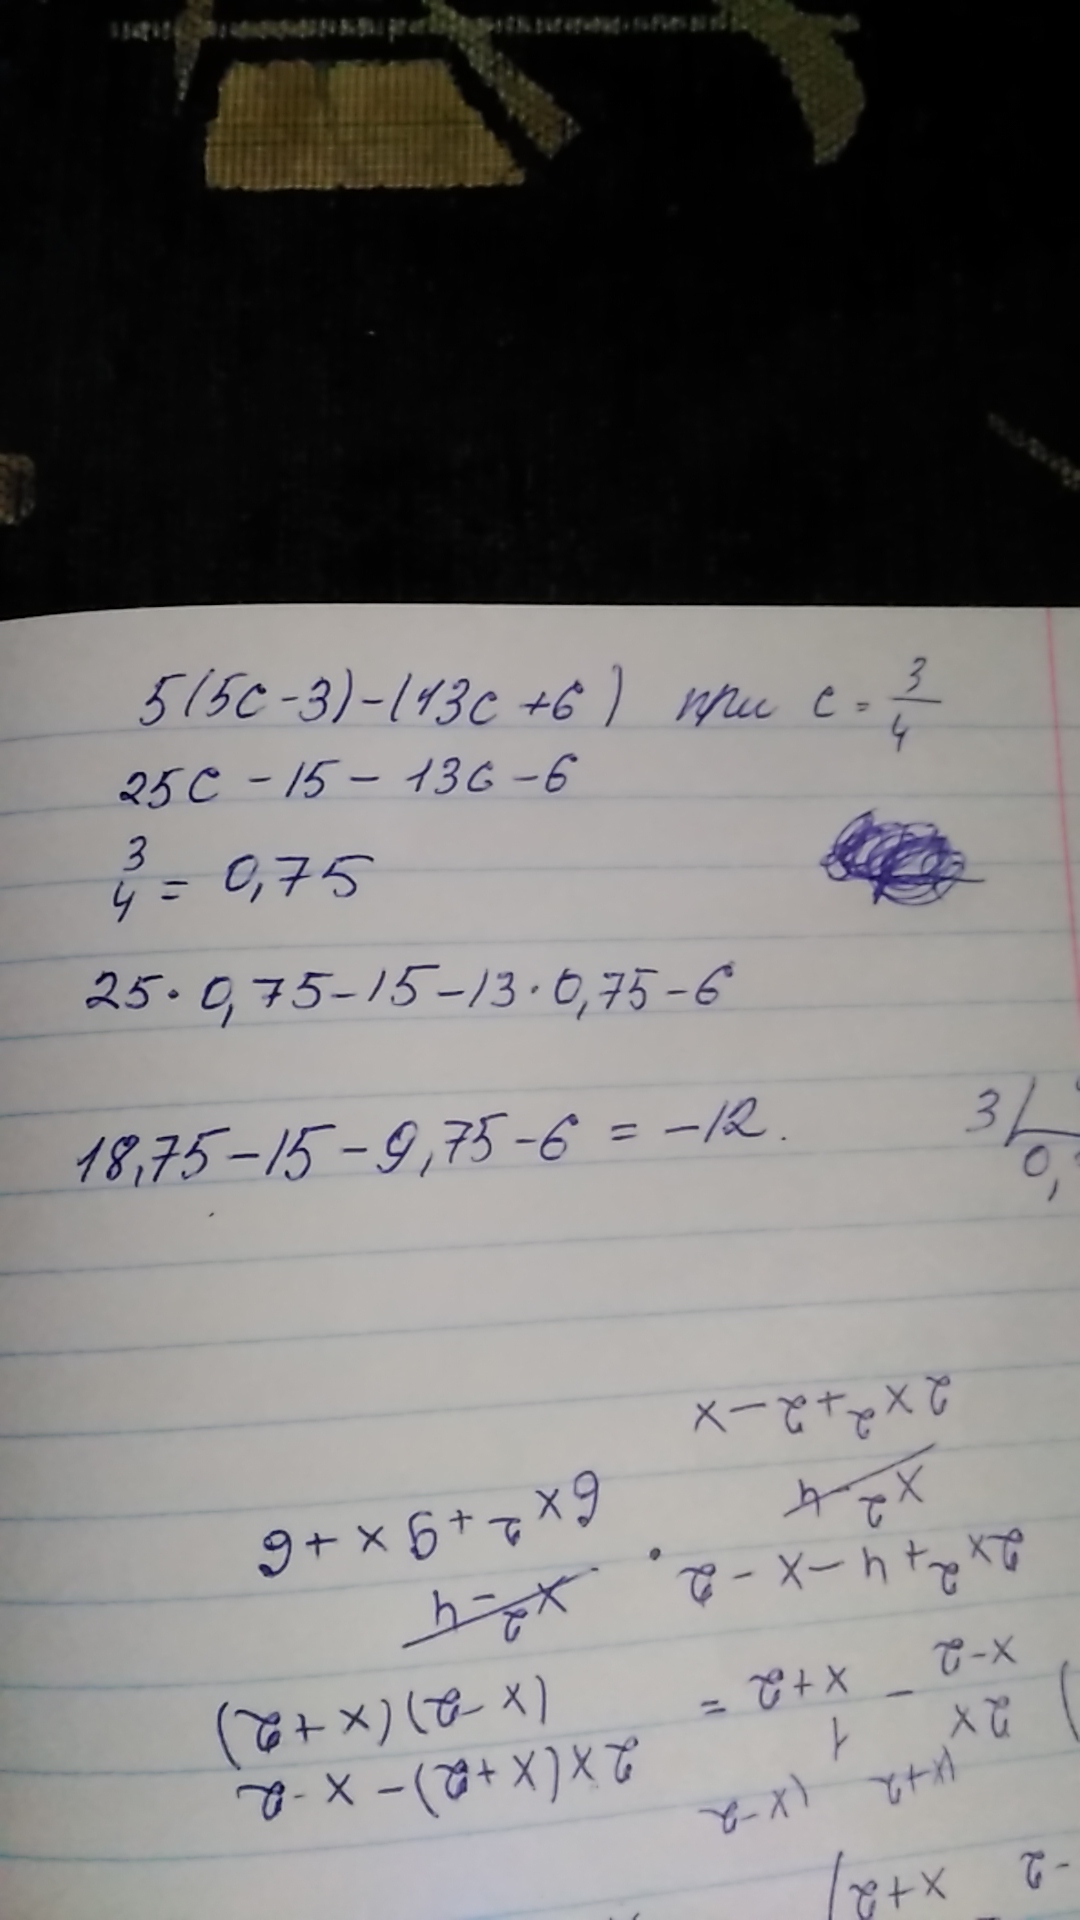 5(5c-3)-(13c+6) при c=3/4
25c-15-13c-6
3/4=0,75
25·0,75-15-13·0,75-6
18,75-15-9,75-6=-12.
3
0,
x+2)
-2
(x+2 (x-2
2x/x-2 - 1/x+2 = 2x(x+2)-x-2/(x-2)(x+2)
2x²+4-x-2/x²-4 · x²-4/6x²+9x+6
2x²+2-x